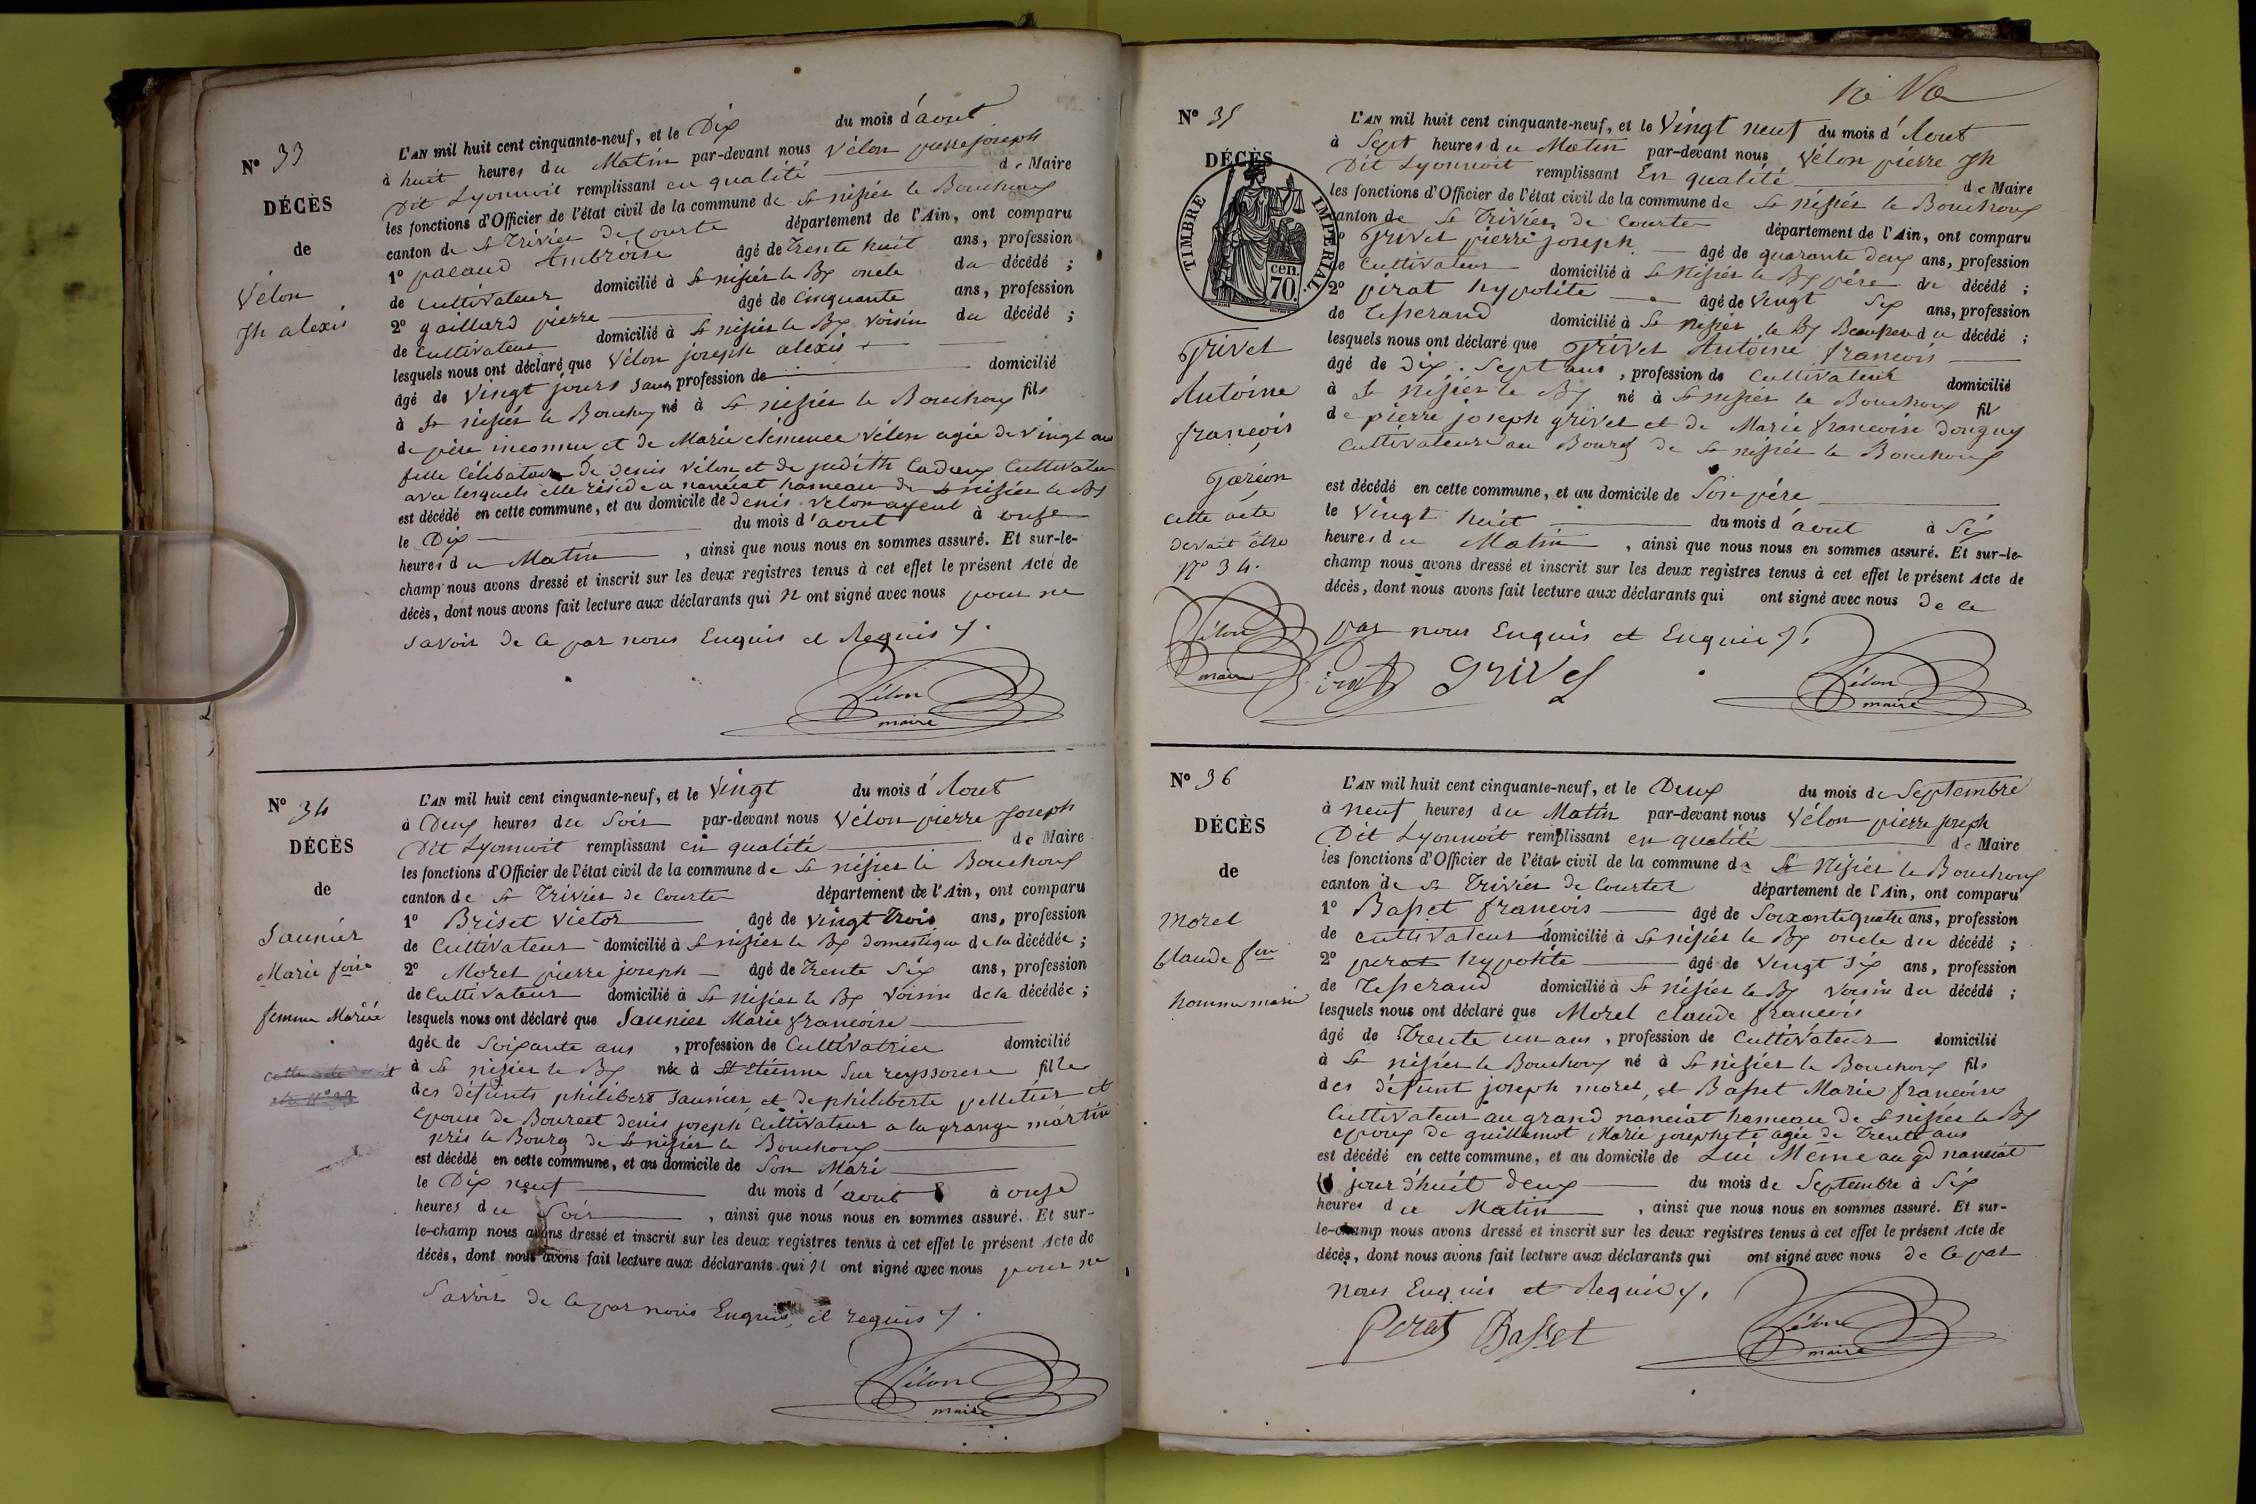 N° 33
DÉCÈS
de
Vélon
Jh alexis
L'AN mil huit cent cinquante-neuf, et le Dix du mois d'aout
à huit heures du Matin par-devant nous Vélon pierre joseph
Dit Lyonnoit remplissant en qualité de Maire
les fonctions d'Officier de l'état civil de la commune de St nisier le Bouchoux
canton de St Trivier de Courte département de l'Ain, ont comparu
1° pacaud Ambroise âgé de Trente huit ans, profession
de Cultivateur domicilié à St nisier le Bx oncle du décédé ;
2° gaillard pierre âgé de Cinquante ans, profession
de Cultivateur domicilié à St nisier le Bx Voisin du décédé ;
lesquels nous ont déclaré que Vélon joseph alexis
âgé de Vingt jours sans profession de domicilié
à St nisier le Bouchx né à St nisier le Bouchoux fils
de père inconnu et de Marie clémence Vélon agée de Vingt ans
fille Célibataire de Denis Vélon et de judith Cadoux Cultivateur
avec lesquels elle réside a nanciat hameau de St nisier le Bx
est décédé en cette commune, et au domicile de Denis Velon ayeul
le Dix du mois d'aout à onze
heures du Matin , ainsi que nous nous en sommes assuré. Et sur-le-
champ nous avons dressé et inscrit sur les deux registres tenus à cet effet le présent Acte de
décès, dont nous avons fait lecture aux déclarants qui n ont signé avec nous pour ne
savoir de ce par nous Enquis et Requis /.
Vélon
maire
N° 34
DÉCÈS
de
Saunier
Marie foise
femme Mariée
L'AN mil huit cent cinquante-neuf, et le Vingt du mois d'Aout
à Deux heures du Soir par-devant nous Vélon pierre Joseph
Dit Lyonnoit remplissant en qualité de Maire
les fonctions d'Officier de l'état civil de la commune de St nisier le Bouchoux
canton de St Trivier de Courte département de l'Ain, ont comparu
1° Briset Victor âgé de Vingt Trois ans, profession
de Cultivateur domicilié à St nisier le Bx domestique de la décédée ;
2° Morel pierre joseph âgé de Trente Six ans, profession
de Cultivateur domicilié à St nisier le Bx Voisin de la décédée ;
lesquels nous ont déclaré que Saunier Marie françoise
âgée de Soixante ans , profession de Cultivatrice domicilié
à St nisier le Bx née à St Etienne Sur reyssouse fille
des défunts philibert Saunier et de philiberte pelletier et
Epouse de Bourcet denis joseph Cultivateur a la grange martin
près le Bourg de St nisier le Bouchoux
est décédé en cette commune, et au domicile de Son Mari
le Dix neuf du mois d'aout à onze
heures du Soir , ainsi que nous nous en sommes assuré. Et sur-
le-champ nous avons dressé et inscrit sur les deux registres tenus à cet effet le présent Acte de
décès, dont nous avons fait lecture aux déclarants qui n ont signé avec nous pour ne
Savoir de ce par nous Enquis et requis /.
Vélon
maire
N° 35
DÉCÈS
TIMBRE IMPÉRIAL
70 cen.
Grivet
Antoine
françois
Garçon
cette acte
devait être
n° 34.
Vélon
maire
L'AN mil huit cent cinquante-neuf, et le Vingt neuf du mois d'Aout
à Sept heures du Matin par-devant nous Vélon pierre Jh
Dit Lyonnoit remplissant En qualité de Maire
les fonctions d'Officier de l'état civil de la commune de St nisier le Bouchoux
canton de St Trivier de Courte département de l'Ain, ont comparu
1° Grivet pierre joseph âgé de quarante Deux ans, profession
de Cultivateur domicilié à St nisier le Bx père du décédé ;
2° pirat hypolite âgé de Vingt Six ans, profession
de Tisserand domicilié à St nisier le Bx Beaupere du décédé ;
lesquels nous ont déclaré que Grivet Antoine françois
âgé de Dix-Sept ans , profession de Cultivateur domicilié
à St nisier le Bx né à St nisier le Bouchoux fil
de pierre joseph grivet et de Marie francoise donguy
Cultivateurs au Bourg de St nisier le Bouchoux
est décédé en cette commune, et au domicile de Son père
le Vingt huit du mois d'aout à Six
heures du Matin , ainsi que nous nous en sommes assuré. Et sur-le-
champ nous avons dressé et inscrit sur les deux registres tenus à cet effet le présent Acte de
décès, dont nous avons fait lecture aux déclarants qui ont signé avec nous de ce
par nous Enquis et Enquis /.
GRIVEL
Vélon
maire
N° 36
DÉCÈS
de
Morel
Claude fois
homme marié
L'AN mil huit cent cinquante-neuf, et le Deux du mois de Septembre
à neuf heures du Matin par-devant nous Vélon pierre joseph
Dit Lyonnoit remplissant en qualité de Maire
les fonctions d'Officier de l'état civil de la commune de St Nisier le Bouchoux
canton de St Trivier de Courtes département de l'Ain, ont comparu
1° Basset francois âgé de Soixante quatre ans, profession
de cultivateur domicilié à St nisier le Bx oncle du décédé ;
2° perat hypolite âgé de Vingt Six ans, profession
de Tisserand domicilié à St nisier le Bx Voisin du décédé ;
lesquels nous ont déclaré que Morel claude francois
âgé de Trente un ans , profession de Cultivateur domicilié
à St nisier le Bouchoux né à St nisier le Bouchoux fils
des défunt joseph morel et Basset Marie francoise
Cultivateur au grand nanciat hameau de St nisier le Bx
epoux de guillemot Marie josephete agée de Trente ans
est décédé en cette commune, et au domicile de Lui Meme au gd nanciat
le jour d'huit Deux du mois de Septembre à Six
heures du Matin , ainsi que nous nous en sommes assuré. Et sur-
le-champ nous avons dressé et inscrit sur les deux registres tenus à cet effet le présent Acte de
décès, dont nous avons fait lecture aux déclarants qui ont signé avec nous de ce par
nous Enquis et Requis /.
Perat Basset
Vélon
maire